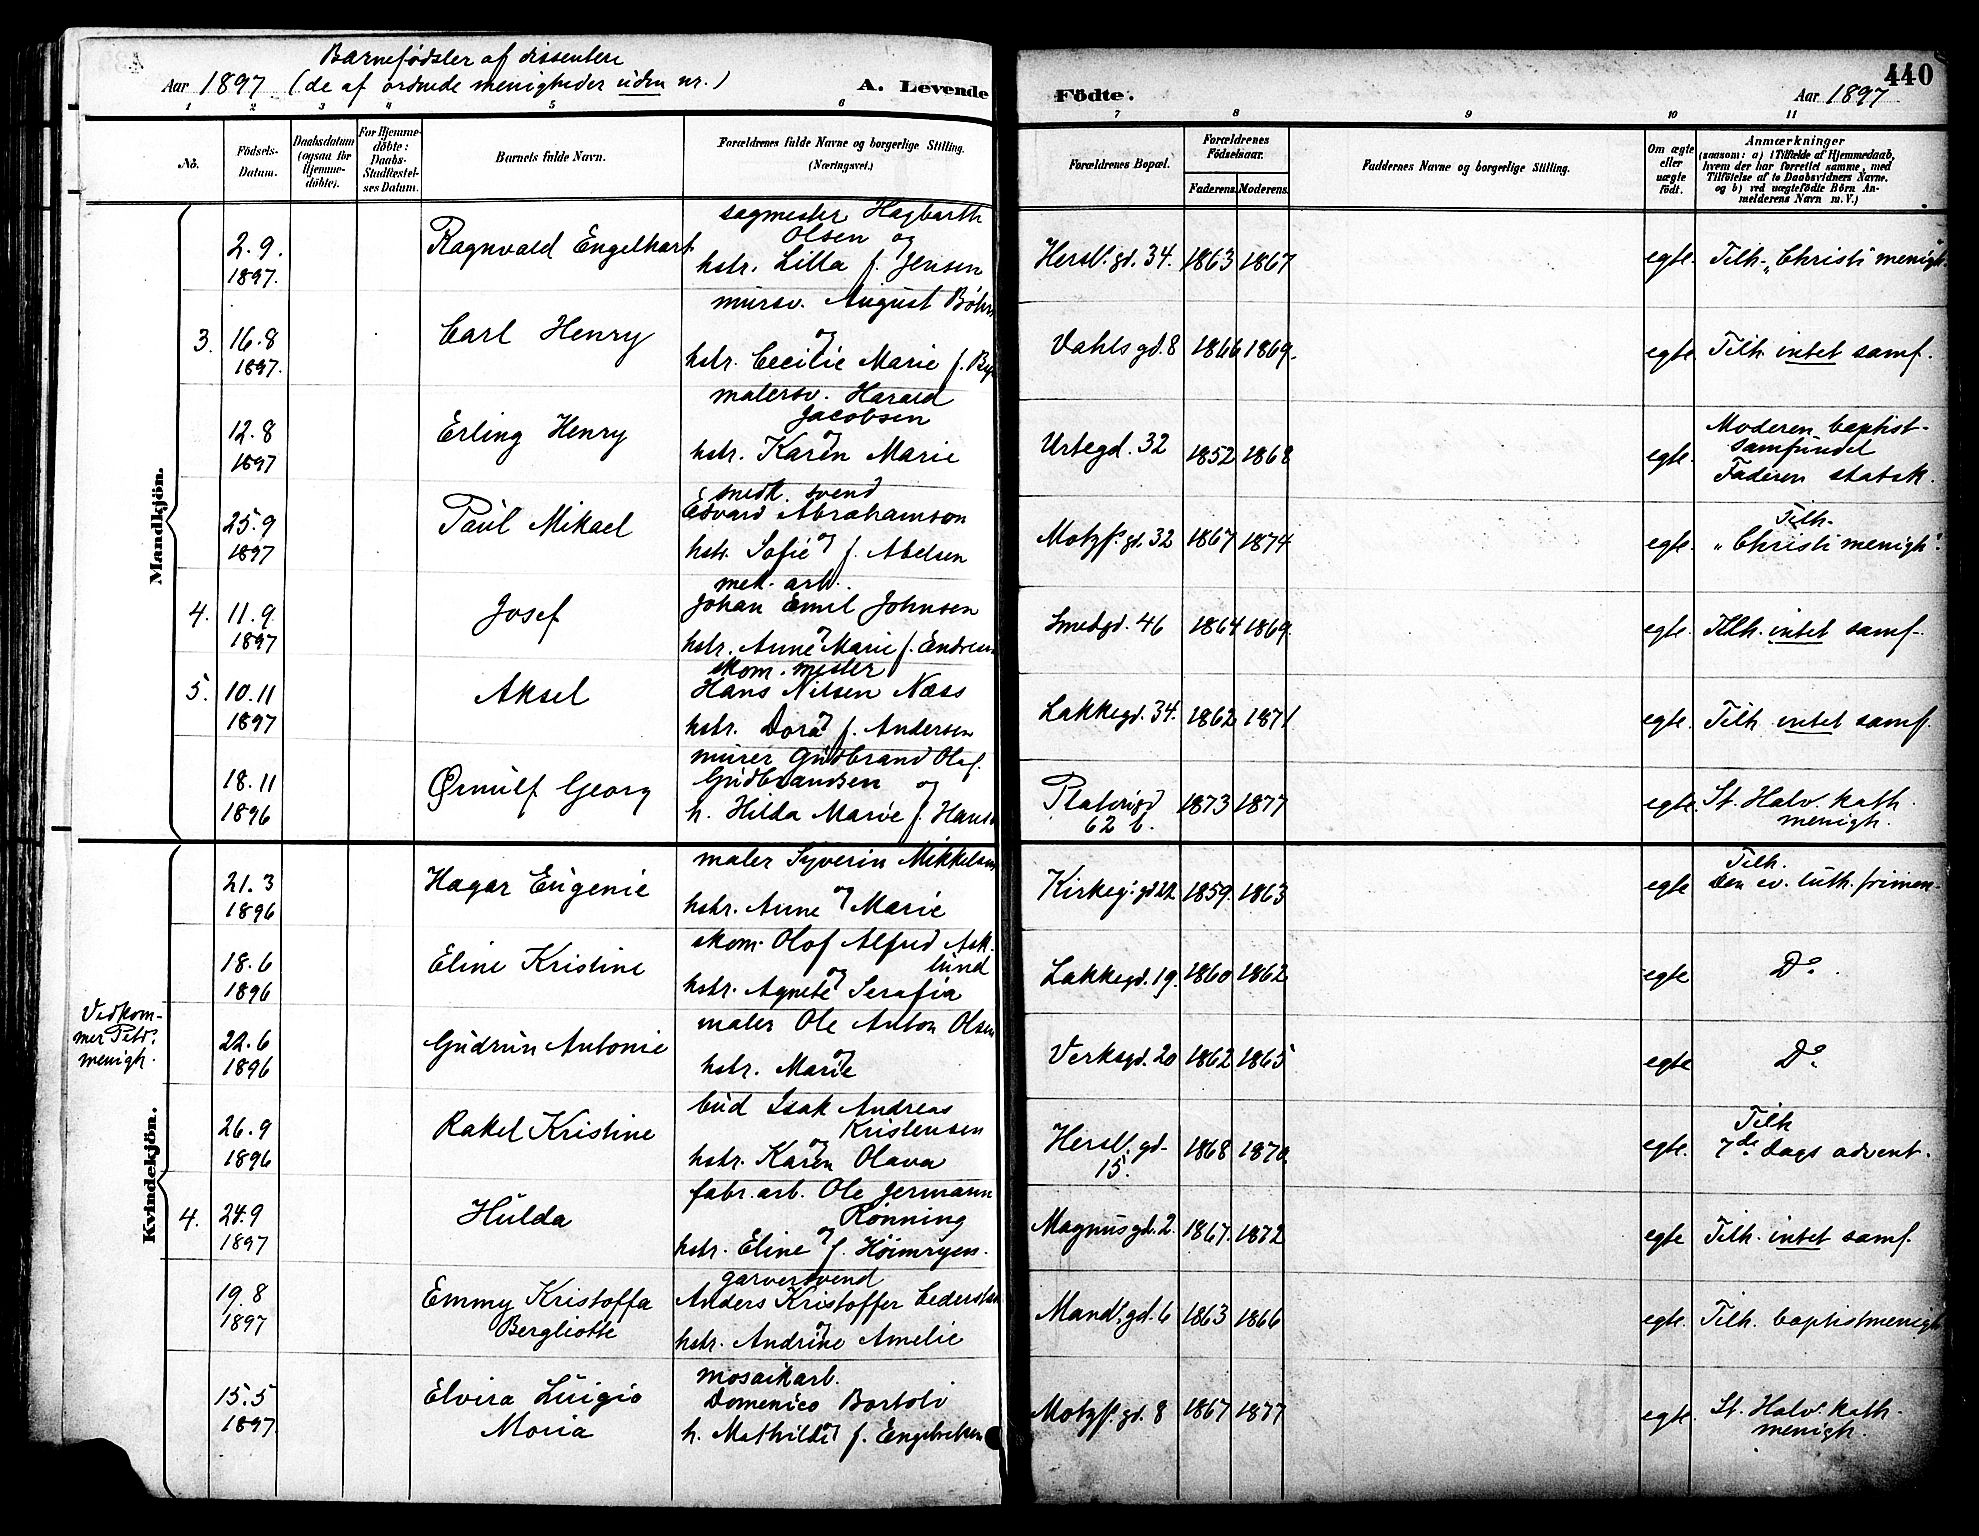 Barnefødsler af dissentere
Aar 1897 (de af ordnede menigheder uden nr.)
A. Levende Födte.
Aar 1897
440
1 2 3 4 5 6 7 8 9 10 11
No.
Födsels-Datum.
Daabsdatum (ogsaa for Hjemme-döbte).
For Hjemme-döbte: Daabs-Stadfæstel-ses Datum.
Barnets fulde Navn.
Forældrenes fulde Navne og borgerlige Stilling. (Næringsvei.)
Forældrenes Bopæl.
Forældrenes Födselsaar.
Faderens. Moderens.
Faddernes Navne og borgerlige Stilling.
Om ægte eller uægte födt.
Anmærkninger
(saasom: a) i Tilfælde af Hjemmedaab, hvem der har forrettet samme, med Tilföielse af to Daabsvidners Navne. og b) ved uægtefödte Börn An-melderens Navn m. V.)
Mandkjön.
2.9. 1897. Ragnvald Engelhart
sagmester Hagbarth
Olsen og
hstr. Lilla f. Jensen
Hersl. gd. 34. 1863 1867 egte. Tilh. "Christi menigh."
3. 16.8 1897. Carl Henry
mursv. August
og
hstr. Cecilie Marie f.
Vahls gd. 8 1866 1869. egte Tilh. intet samf.
12.8 1897 Erling Henry
malersv. Harald
Jacobsen
og
hstr. Karen Marie
Urtegd. 32 1852 1868 egte. Moderen baptist-
samfundet
Faderen statsk.
25.9 1897 Paul Mikael
snedk. svend
Edvard Abrahamson
og
hstr. Sofie f. Abelsen
Motzf. gd. 32 1867 1874 egte. Tilh.
"Christi menigh".
4. 11.9. 1897 Josef
mek. arb.
Johan Emil Johnsen
og
hstr. Anne Marie f.
Smedgd. 46 1864 1869. egte. Tilh. intet samf.
5. 10.11 1897 Aksel
skom. mester
Hans Nilsen Næss
og
hstr. Dora f. Andersen
Lakkegd. 34. 1862 1871 egte. Tilh. intet samf.
18.11 1896 Ørnulf Georg
murer Gudbrand Olaf
Gudbrandsen og
h. Hilda Marie f.
62 b. 1873 1877 egte. St. Halv. kath.
menigh.
Kvindekjön.
21.3 1896 Hagar Eugenie
maler Syverin Mikkelsen
og
hstr. Anne Marie
Kirkeg. gd 22 1859. 1863 egte Tilh.
Den ev. luth. frimen.
18.6 1896 Eline Kristine
skom. Olof Alfred Ask-
lund
og
hstr. Agnete Serafia
Lakkegd. 19. 1860 1862 egte Do.
Vedkom-
mer Petr.
menigh.
22.6 1896 Gudrun Antonie
maler Ole Anton Olsen
og
hstr. Marie
Verksgd. 20 1862 1865 egte Do.
26.9 1896 Rakel Kristine
bud Isak Andreas
Kristensen
og
hstr. Karen Olava
Hersl. gd.
15. 1868 1870. egte. Tilh
7de Dags advent.
4. 24.9 1897 Hulda
fabr. arb. Ole Jermann
Rønning
og
hstr. Eline f.
Magnusgd. 2. 1867. 1872 egte Tilh. intet samf.
19.8 1897 Emmy Kristoffa
Bergliotte
garversvend
Anders Kristoffer
og
hstr. Andrine Amelie
Mandl. gd. 6 1863 1866 egte. Tilh. baptistmenigh
15.5 1897. Elvira Luigio
Maria
mosaikarb.
Domenico Bortoli
og
h. Mathilde f. Engebretsen
Motzf. gd. 8 1867 1877 egte. St. Halv. kath.
menigh.